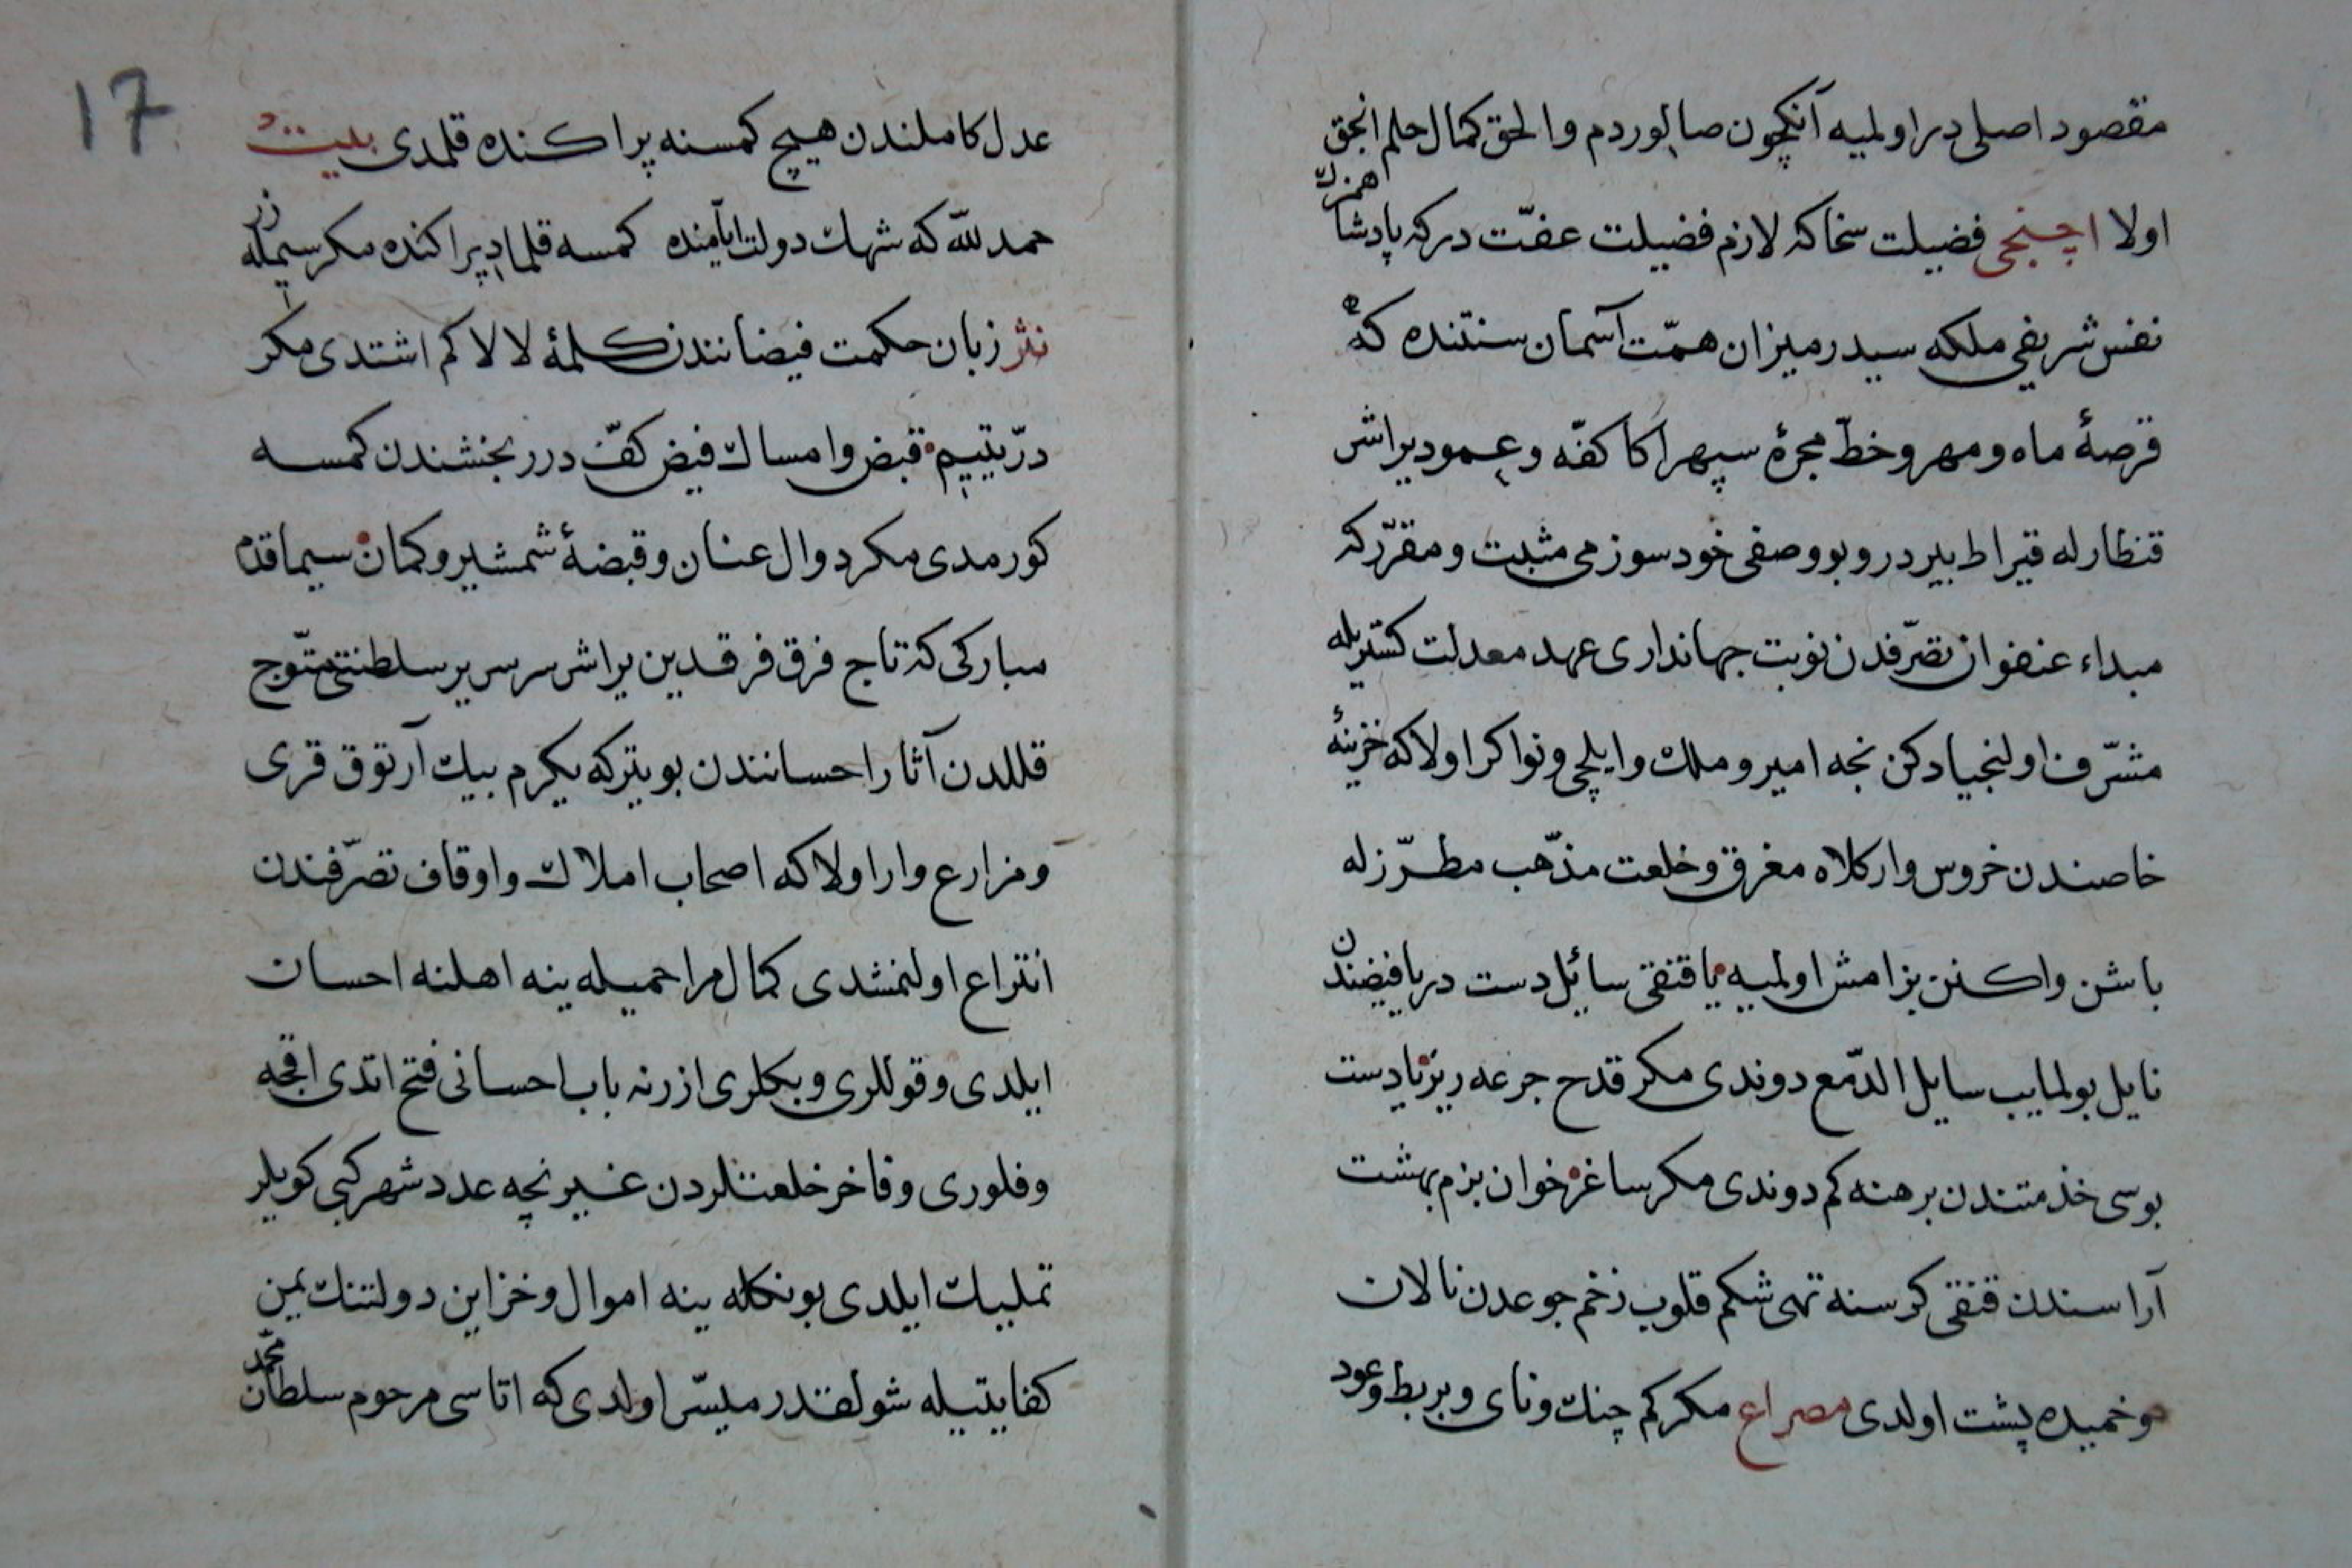 مقصود اصلی در اولمیه آنکچون صالوردم والحق کمال حلم انجق
اولا اچنجی فضیلت سخا که لازم فضیلت عفّت در که پادشاهمزك
نفس شریفی ملکه سیدر میزان همّت آسمان سنتنده که
قرصهٔ ماه و مهر و خطّ مجرهٔ سپهر اکا کفّه و عمود یراشر
قنطار له قیراط بیردر و بو وصفی خود سوزمی مثبت و مقرّر که
مبداء عنفوان تصرّفدن نوبت جهانداری عهد معدلت کستریله
مشرّف اولنجیادکن نجه امیر و ملك و ایلچی و نواکر اولا که خزینهٔ
خاصندن خروس وار کلاه مغرق و خلعت مذهّب مطرّز له
باشن و اکنن بزامش اولمیه یا قنقی سائل دست دریا فیضندن
نایل بولمایب سایل الدّمع دوندی مکر قدح جرعه ریز یا دست
بوسی خذمتندن برهنه کم دوندی مکر ساغر خوان بزم بهشت
آراسندن قنقی کرسنه تهی شکم قلوب زخم جوعدن نالان
و خمیده پشت اولدی مصراع مکر کم چنك و نای و بربط و عود
17
عدل کاملندن هیچ کمسنه پراکنده قلمدی بیت
حمد لله که شهك دولت ایآمنده کمسه قلمادی پراکنده مکر سیمله زر
نثر زبان حکمت فیضانندن کلمهٔ لا لا کم اشتدی مکر
درّ یتیم قبض و امساك فیض کفّ درر بخشندن کمسه
کورمدی مکر دوال عنان و قبضهٔ شمشیر و کمان سیما قدم
مبارکی که تاج فرق فرقدین یراشر سر سریر سلطنتی متوّج
قللدن آثار احسانندن بو یتر که یکرم بیك آرتوق قری
و مزارع وار اولا که اصحاب املاك و اوقاف تصرّفندن
انتزاع اولنمشدی کمال مراحمیله ینه اهلنه احسان
ایلدی و قوللری و بکلری ازرنه باب احسانی فتح اتدی اقجه
و فلوری و فاخر خلعتلردن غیر نچه عدد شهر کبی کویلر
تملیك ایلدی بونکله ینه اموال و خزاین دولتنك یمن
کفایتیله شولقدر میسّر اولدی که اتاسی مرحوم سلطان محمّد